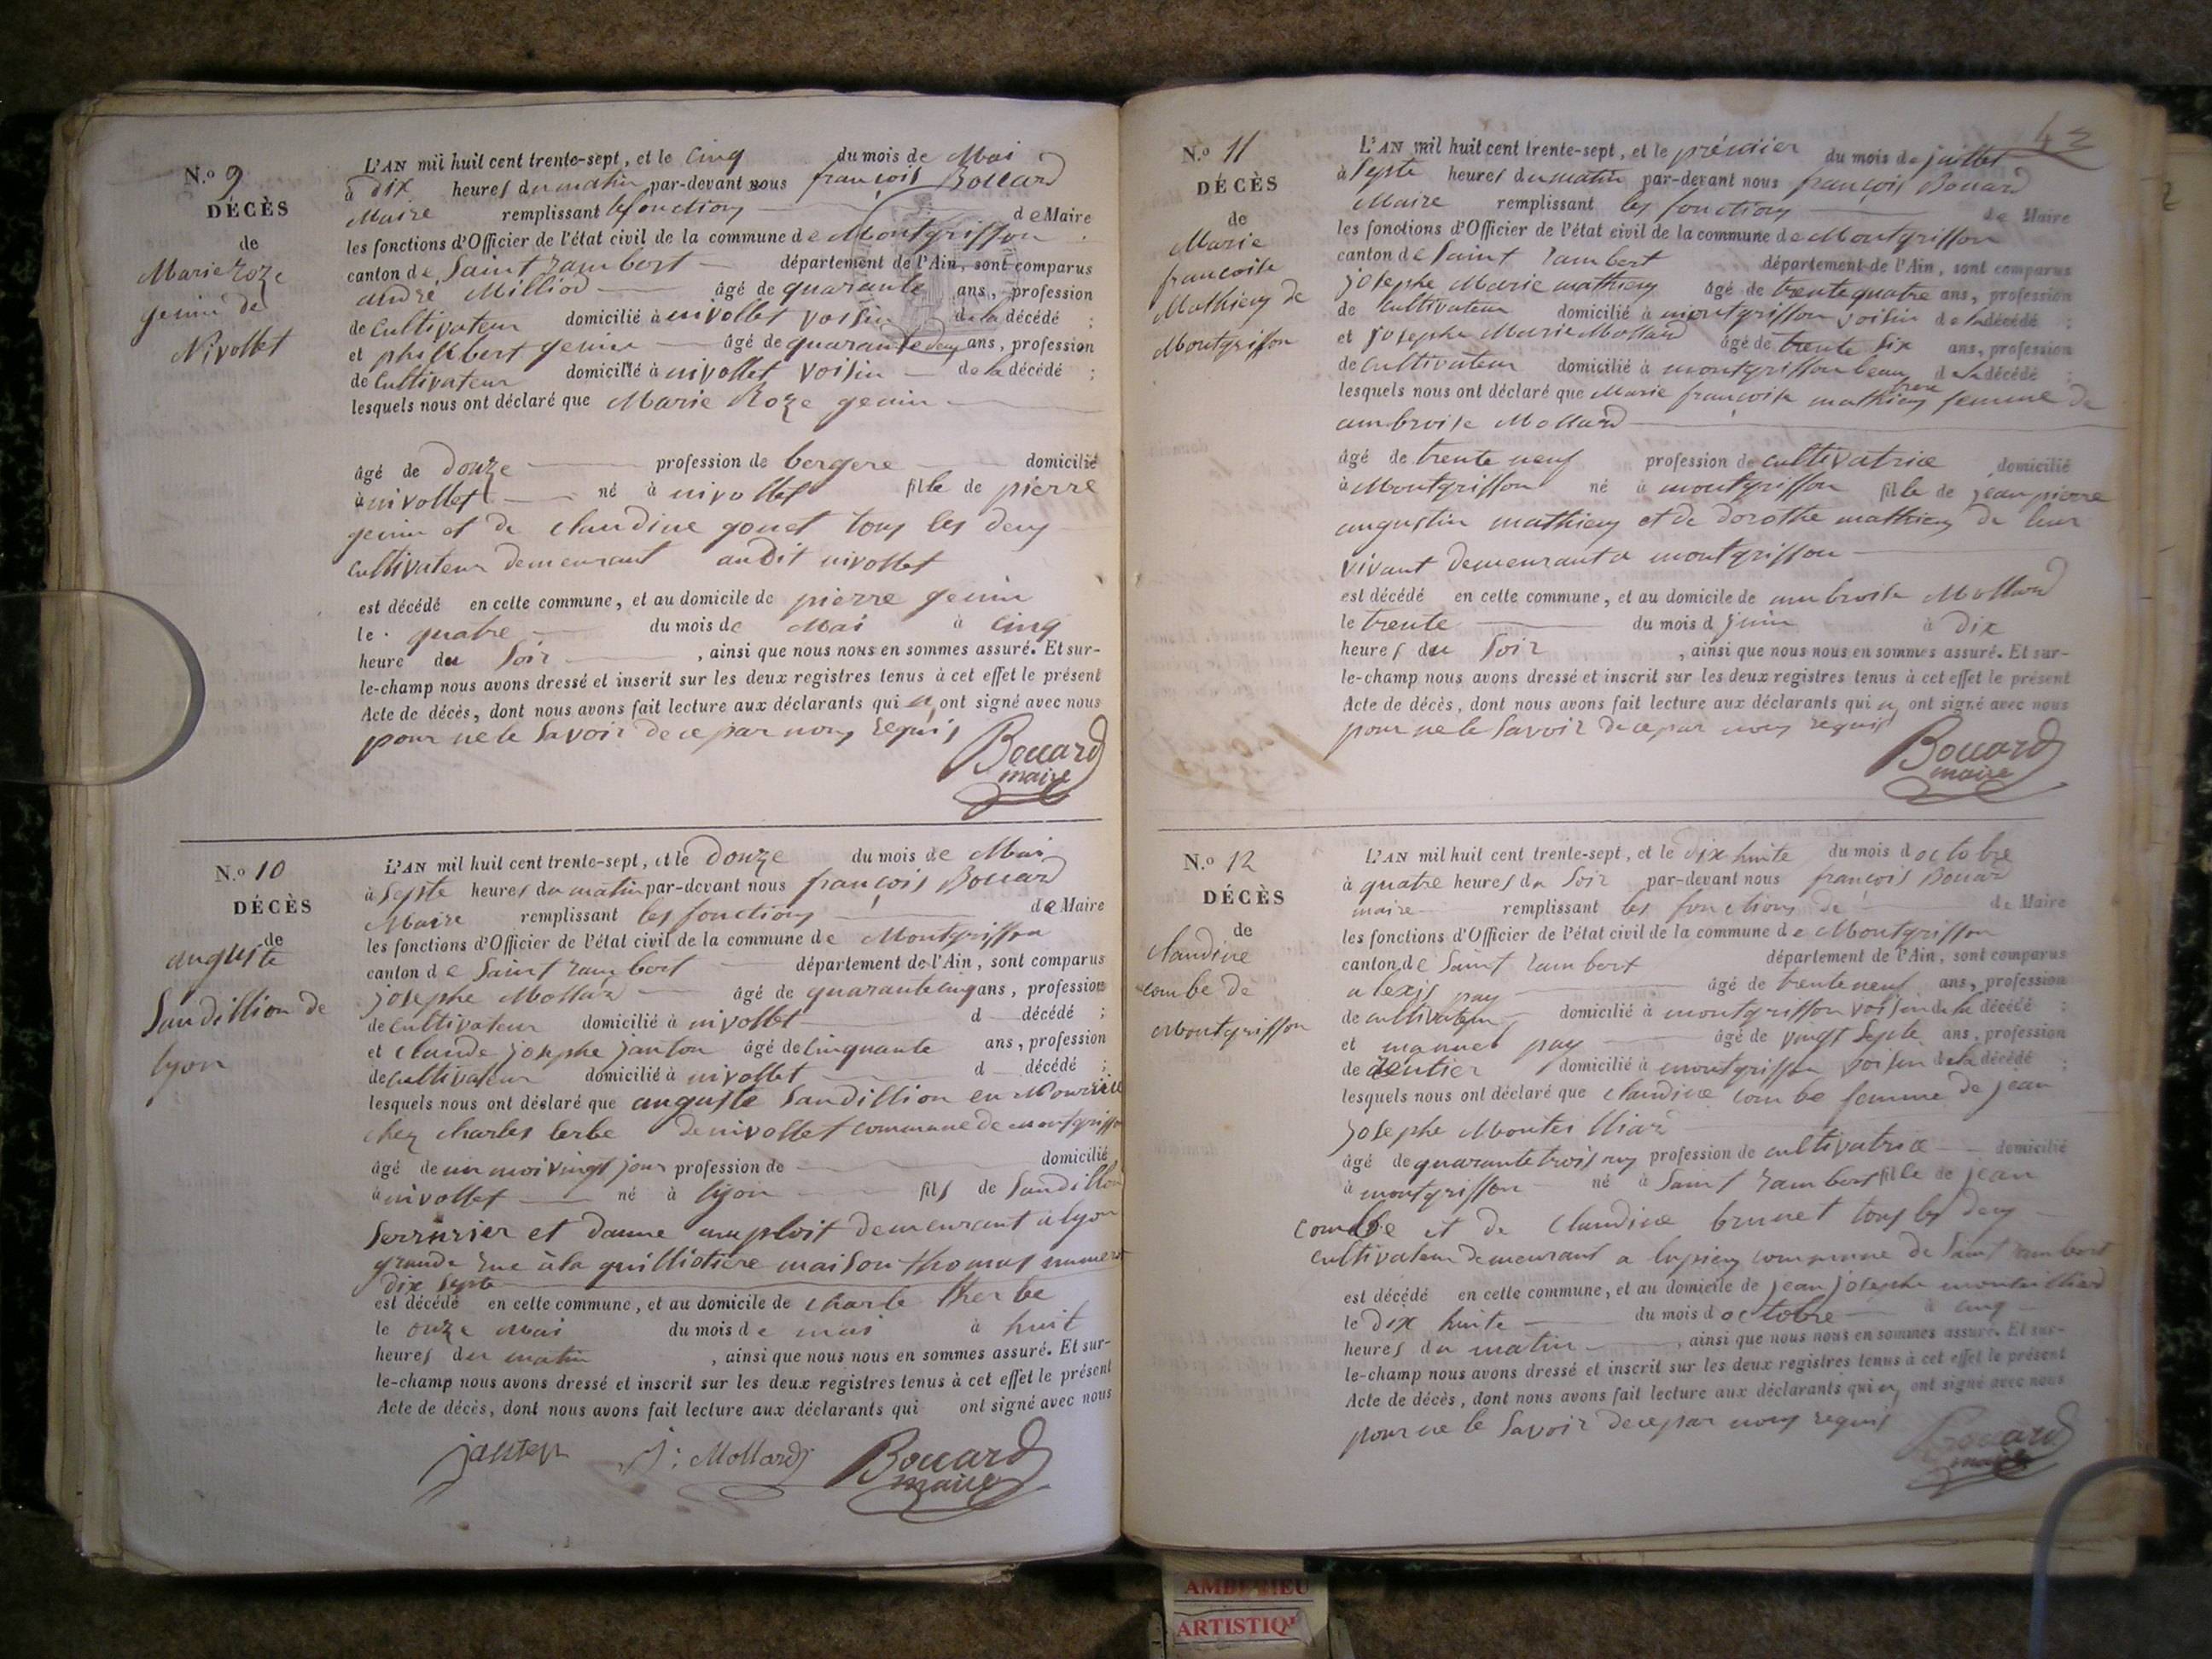 N.o 9
DÉCÈS
de
Marie Roze
genin de
Nivollet
L'AN mil huit cent trente-sept, et le cinq du mois de Mai
à dix heures du matin par-devant nous françois Bouard
Maire remplissant les fonctions de Maire
les fonctions d'Officier de l'état civil de la commune de Montgriffon
canton de Saint rambert département de l'Ain, sont comparus
andré Milliod âgé de quarante ans, profession
de Cultivateur domicilié à nivollet voisin de la décédé ;
et philibert genin âgé de quarante deux ans, profession
de Cultivateur domicilié à nivollet voisin de la décédé ;
lesquels nous ont déclaré que Marie Roze genin
âgé de douze profession de bergere domicilié
à nivollet né à nivollet fille de pierre
genin et de claudine gonet tous les deux
cultivateur demeurant audit nivollet
est décédé en cette commune, et au domicile de pierre genin
le quatre du mois de Mai à cinq
heure du soir , ainsi que nous nous en sommes assuré. Et sur-
le-champ nous avons dressé et inscrit sur les deux registres tenus à cet effet le présent
Acte de décès, dont nous avons fait lecture aux déclarants qui n, ont signé avec nous
pour ne le savoir de ce par nous requis
Bouard
maire
N.o 10
DÉCÈS
de
auguste
Sandillion de
lyon
L'AN mil huit cent trente-sept, et le douze du mois de Mai
à septe heures du matin par-devant nous françois Bouard
Maire remplissant les fonctions de Maire
les fonctions d'Officier de l'état civil de la commune de Montgriffon
canton de Saint rambert département de l'Ain, sont comparus
josephe Mollard âgé de quarante cinq ans, profession
de cultivateur domicilié à nivollet d décédé ;
et claude josephe janton âgé de cinquante ans, profession
de cultivateur domicilié à nivollet d décédé ;
lesquels nous ont déclaré que auguste Sandillion en Nourrice
chez charles berbe de nivollet commune de montgriffon
âgé de un moi vingt jour profession de domicilié
à nivollet né à lyon fils de Sandillion
serrurier et danne anploit demeurant à lyon
grande rue à la guilliotiere maison thomas numero
dix septe
est décédé en cette commune, et au domicile de charle therbe
le onze Mai du mois de mai à huit
heures du matin , ainsi que nous nous en sommes assuré. Et sur-
le-champ nous avons dressé et inscrit sur les deux registres tenus à cet effet le présent
Acte de décès, dont nous avons fait lecture aux déclarants qui ont signé avec nous
janton J: Mollard Bouard
maire
43
N.o 11
DÉCÈS
de
Marie
francoise
Mathieu de
Montgriffon
L'AN mil huit cent trente-sept, et le prémiier du mois de juillet
à septe heures du matin par-devant nous françois Bouard
Maire remplissant les fonctions de Maire
les fonctions d'Officier de l'état civil de la commune de Montgriffon
canton de Saint rambert département de l'Ain, sont comparus
josephe Marie mathieu âgé de trente quatre ans, profession
de cultivateur domicilié à montgriffon voisin de la décédé ;
et josephe Marie Mollard âgé de trente six ans, profession
de cultivateur domicilié à montgriffon beau frere de la décédé ;
lesquels nous ont déclaré que Marie françoise mathieu femme de
ambroise Mollard
âgé de trente neuf profession de cultivatrice domicilié
à Montgriffon né à montgriffon fille de jean pierre
augustin mathieu et de dorothe mathieu de leur
vivant demeurant a montgriffon
est décédé en cette commune, et au domicile de ambroise Mollard
le trente du mois d juin à dix
heures du soir , ainsi que nous nous en sommes assuré. Et sur-
le-champ nous avons dressé et inscrit sur les deux registres tenus à cet effet le présent
Acte de décès, dont nous avons fait lecture aux déclarants qui n, ont signé avec nous
pour ne le savoir de ce par nous requis
Bouard
maire
N.o 12
DÉCÈS
de
Claudine
combe de
Montgriffon
L'AN mil huit cent trente-sept, et le dix huite du mois d octobre
à quatre heures du soir par-devant nous françois Bouard
maire remplissant les fonctions de de Maire
les fonctions d'Officier de l'état civil de la commune de Montgriffon
canton de Saint rambert département de l'Ain, sont comparus
alexis pay âgé de trente neuf ans, profession
de cultivateur domicilié à montgriffon voisin de la décédé ;
et manuel pay âgé de vingt septe ans, profession
de rentier domicilié à montgriffon voisin de la décédé ;
lesquels nous ont déclaré que claudine combe femme de jean
josephe Monteilliard
âgé de quarante trois ans profession de cultivatrice domicilié
à montgriffon né à Saint rambert fille de jean
combe et de claudine brunet tous les deux
cultivateur demeurant a lupieu commune de Saint rambert
est décédé en cette commune, et au domicile de jean josephe monteilliard
le dix huite du mois d octobre à cinq
heures du matin , ainsi que nous nous en sommes assuré. Et sur-
le-champ nous avons dressé et inscrit sur les deux registres tenus à cet effet le présent
Acte de décès, dont nous avons fait lecture aux déclarants qui n, ont signé avec nous
pour ne le savoir de ce par nous requis
Bouard
maire
ARTISTIQ